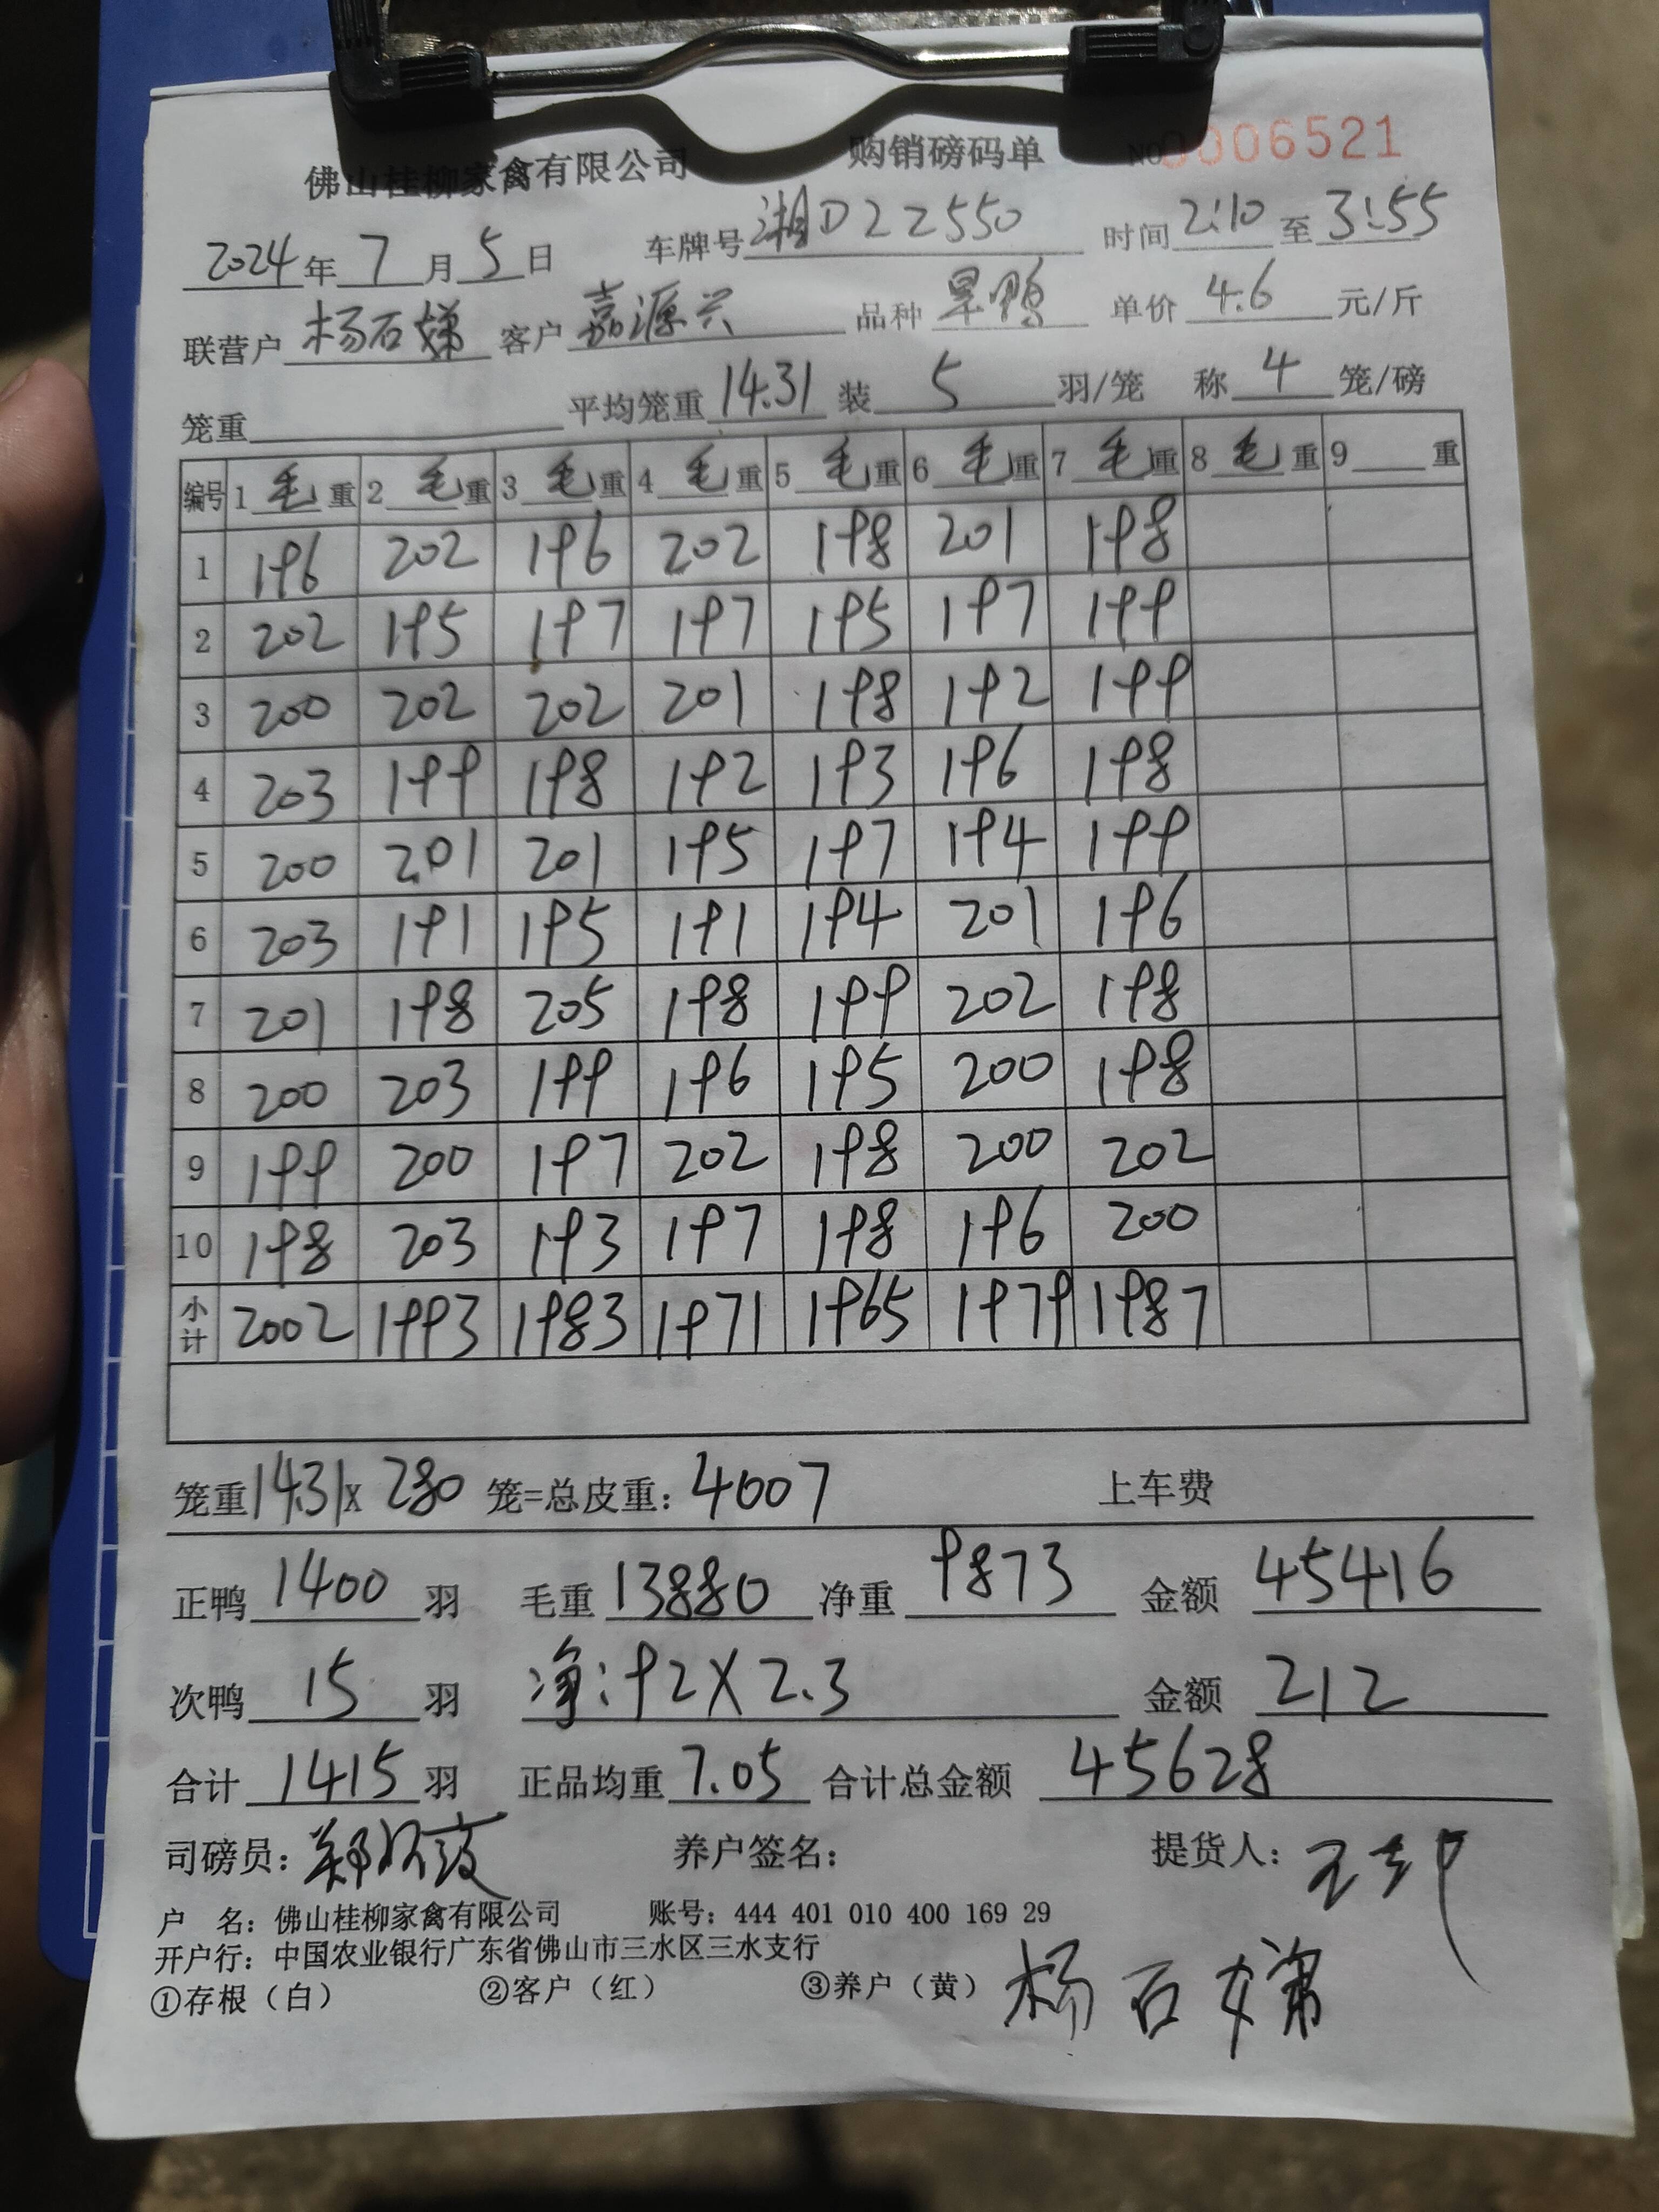 佛山桂柳家禽有限公司 购销磅码单 NO 0006521
2024年7月5日 车牌号湘D22550 时间2:10至3:55
联营户杨石娣 客户嘉源兴 品种旱鸭 单价4.6元/斤
笼重 平均笼重14.31装5羽/笼 称4笼/磅
编号 1毛重 2毛重 3毛重 4毛重 5毛重 6毛重 7毛重 8毛重 9重
1 196 202 196 202 198 201 198
2 202 195 197 197 195 197 199
3 200 202 202 201 198 192 199
4 203 199 198 192 193 196 198
5 200 201 201 195 197 194 199
6 203 191 195 191 194 201 196
7 201 198 205 198 199 202 198
8 200 203 199 196 195 200 198
9 199 200 197 202 198 200 202
10 198 203 193 197 198 196 200
小计 2002 1993 1983 1971 1965 1979 1987
笼重1431x280笼=总皮重:4007 上车费
正鸭1400羽 毛重13880净重9873 金额45416
次鸭15羽 净:92X2.3 金额212
合计1415羽 正品均重7.05合计总金额45628
司磅员: 养户签名: 提货人:
户 名:佛山桂柳家禽有限公司 账号:444 401 010 400 169 29
开户行:中国农业银行广东省佛山市三水区三水支行
①存根(白) ②客户(红) ③养户(黄) 杨石娣